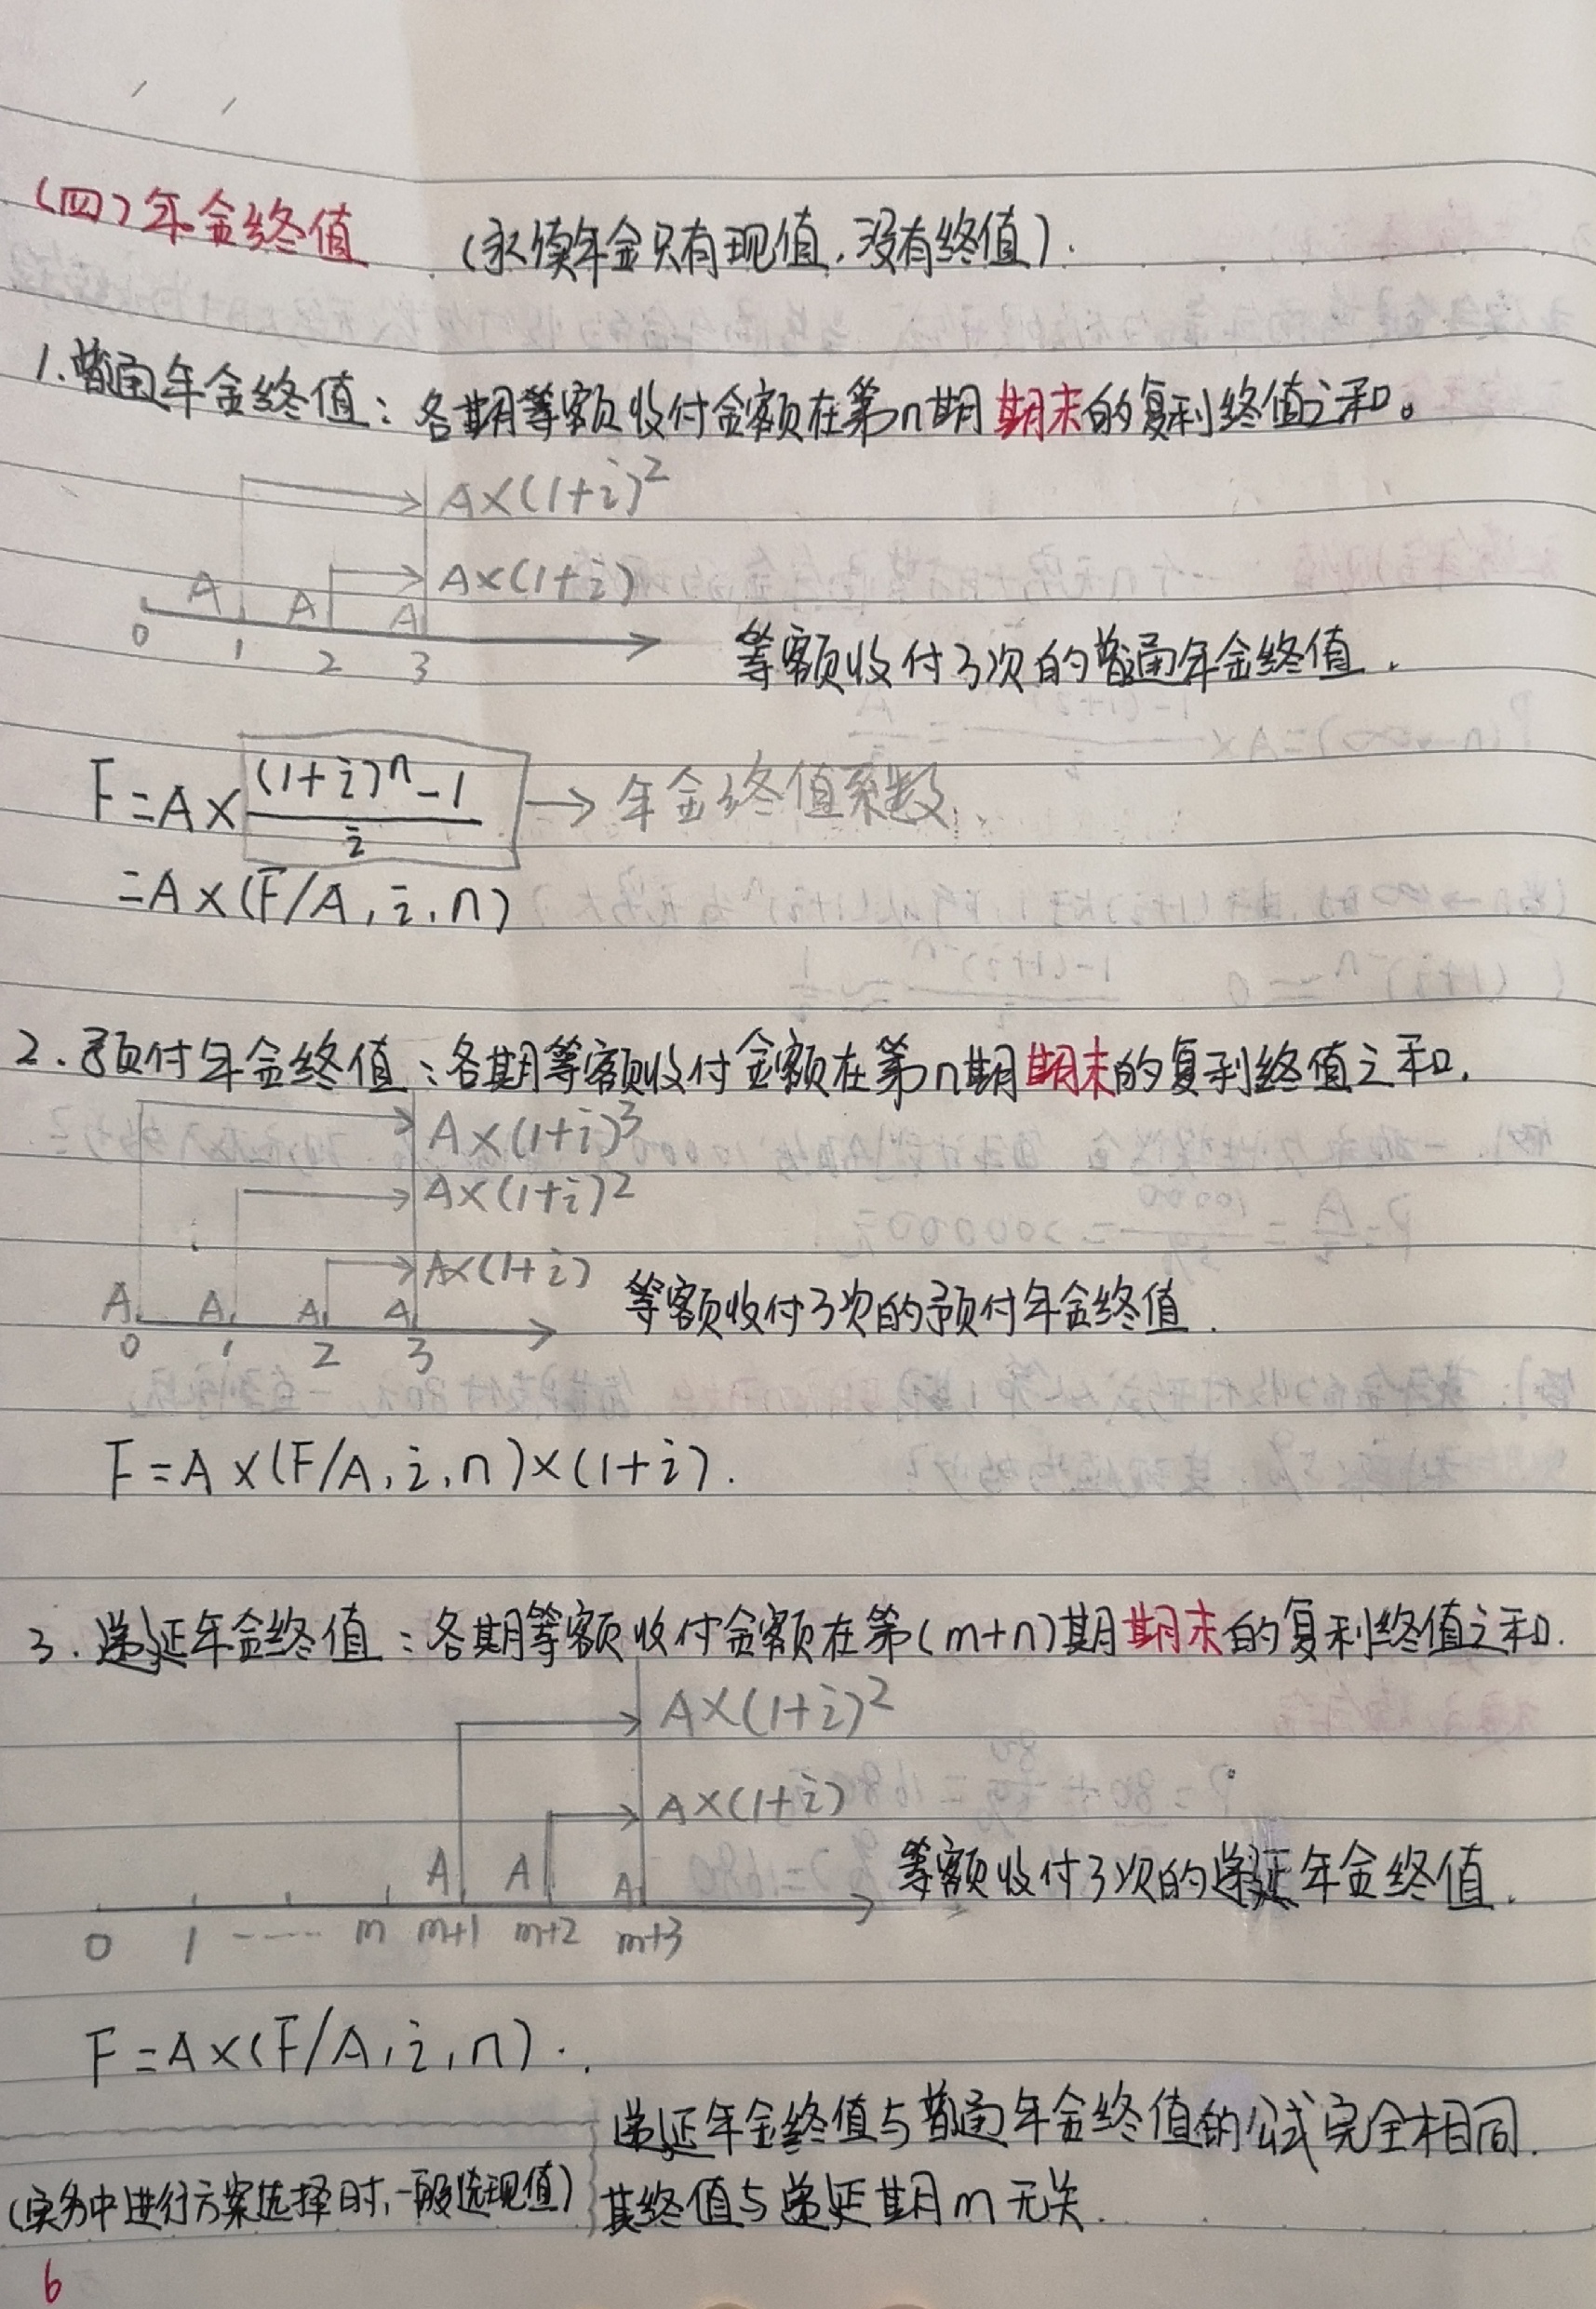 (四)年金终值 (永续年金只有现值,没有终值).
1.普通年金终值:各期等额收付金额在第n期期末的复利终值之和。
A×(1+i)²
A×(1+i)
A A A
0 1 2 3
等额收付3次的普通年金终值.
F=A×((1+i)ⁿ-1)/i → 年金终值系数
=A×(F/A,i,n)
2.预付年金终值:各期等额收付金额在第n期期末的复利终值之和.
A×(1+i)³
A×(1+i)²
A×(1+i)
A A A A
0 1 2 3
等额收付3次的预付年金终值.
F=A×(F/A,i,n)×(1+i).
3.递延年金终值:各期等额收付金额在第(m+n)期期末的复利终值之和.
A×(1+i)²
A×(1+i)
A A A
等额收付3次的递延年金终值.
0 1 ---- m m+1 m+2 m+3
F=A×(F/A,i,n).
递延年金终值与普通年金终值的公式完全相同.
(实务中进行方案选择时,一般选现值) 其终值与递延期m无关.
6